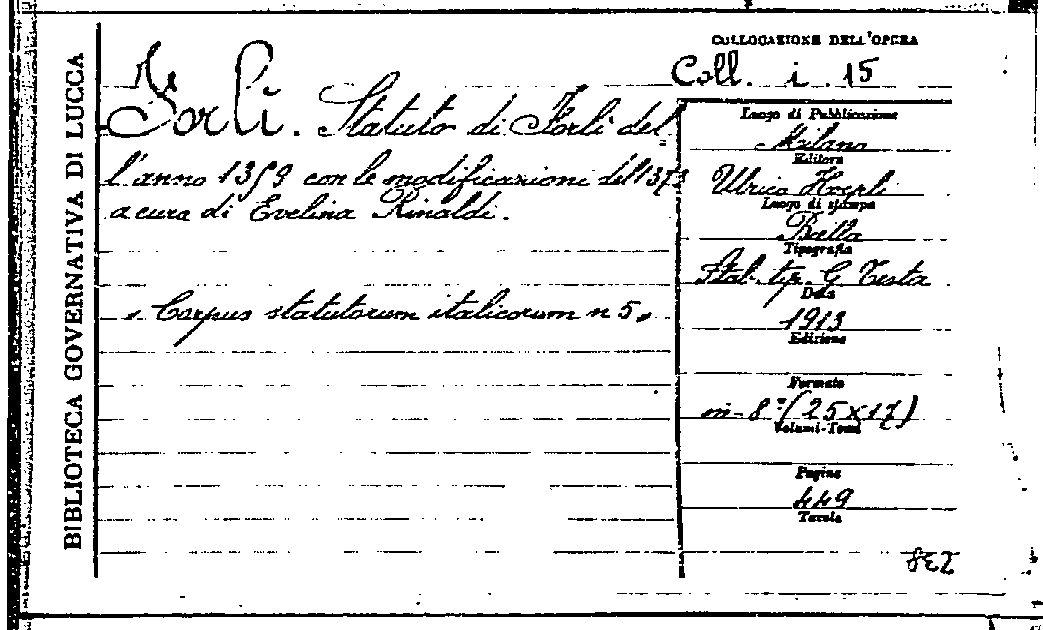 BIBLIOTECA GOVERNATIVA DI LUCCA
COLLOCAZIONE DELL'OPERA
Coll. i. 15
Forlì. Statuto di Forlì del
l'anno 1359 con le modificazioni del 1373
a cura di Evelina Rinaldi.
"Corpus statutorum italicorum n 5"
Luogo di Pubblicazione
Milano
Editore
Ulrico Hoepli
Luogo di stampa
Biella
Tipografia
Stab. tip. G Testa
Data
1913
Edizione
Formato
in-8° (25x17)
Volumi-Tomi
Pagine
449
Tavole